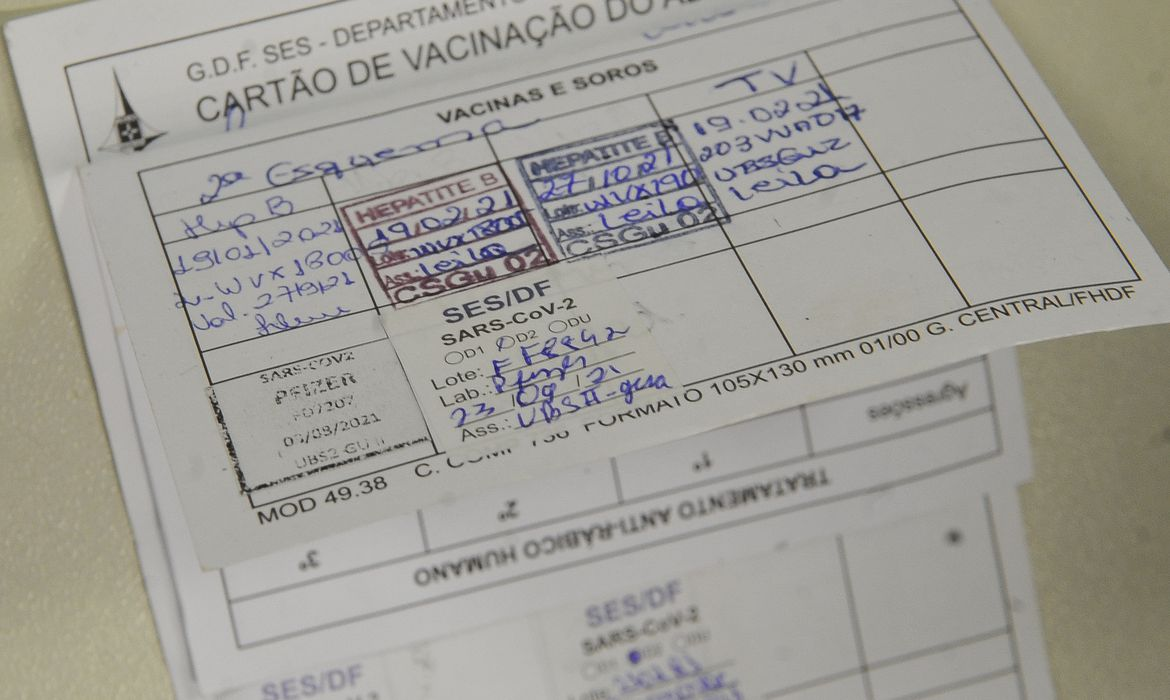 G.D.F. SES - DEPARTAMENTO
CARTÃO DE VACINAÇÃO DO
VACINAS E SOROS
2º Esquema
Hep B
19/01/2021
WVX1800
Val. 27/9/21
HEPATITE B
19/02/21
Lote: WVX1800
Ass.: Leila
CSGu 02
HEPATITE B
27/10/21
Lote: WVX190
Ass.: Leila
CSGU 02
TV
19.02.21
203VVA017
UBSGU2
Leila
SARS-COV2
PFIZER
03/08/2021
UBS2 GU II
SES/DF
SARS-CoV-2
D1 D2 DU
Lote:
Lab.: Pfizer
23/09/21
Ass.: UBSII-
MOD 49.38 C. COMP 756 FORMATO 105X130 mm 01/00 G. CENTRAL/FHDF
Agressões
1ª
2ª
3ª
TRATAMENTO ANTI-RÁBICO HUMANO
SES/DF
SARS-CoV-2
SES/DF